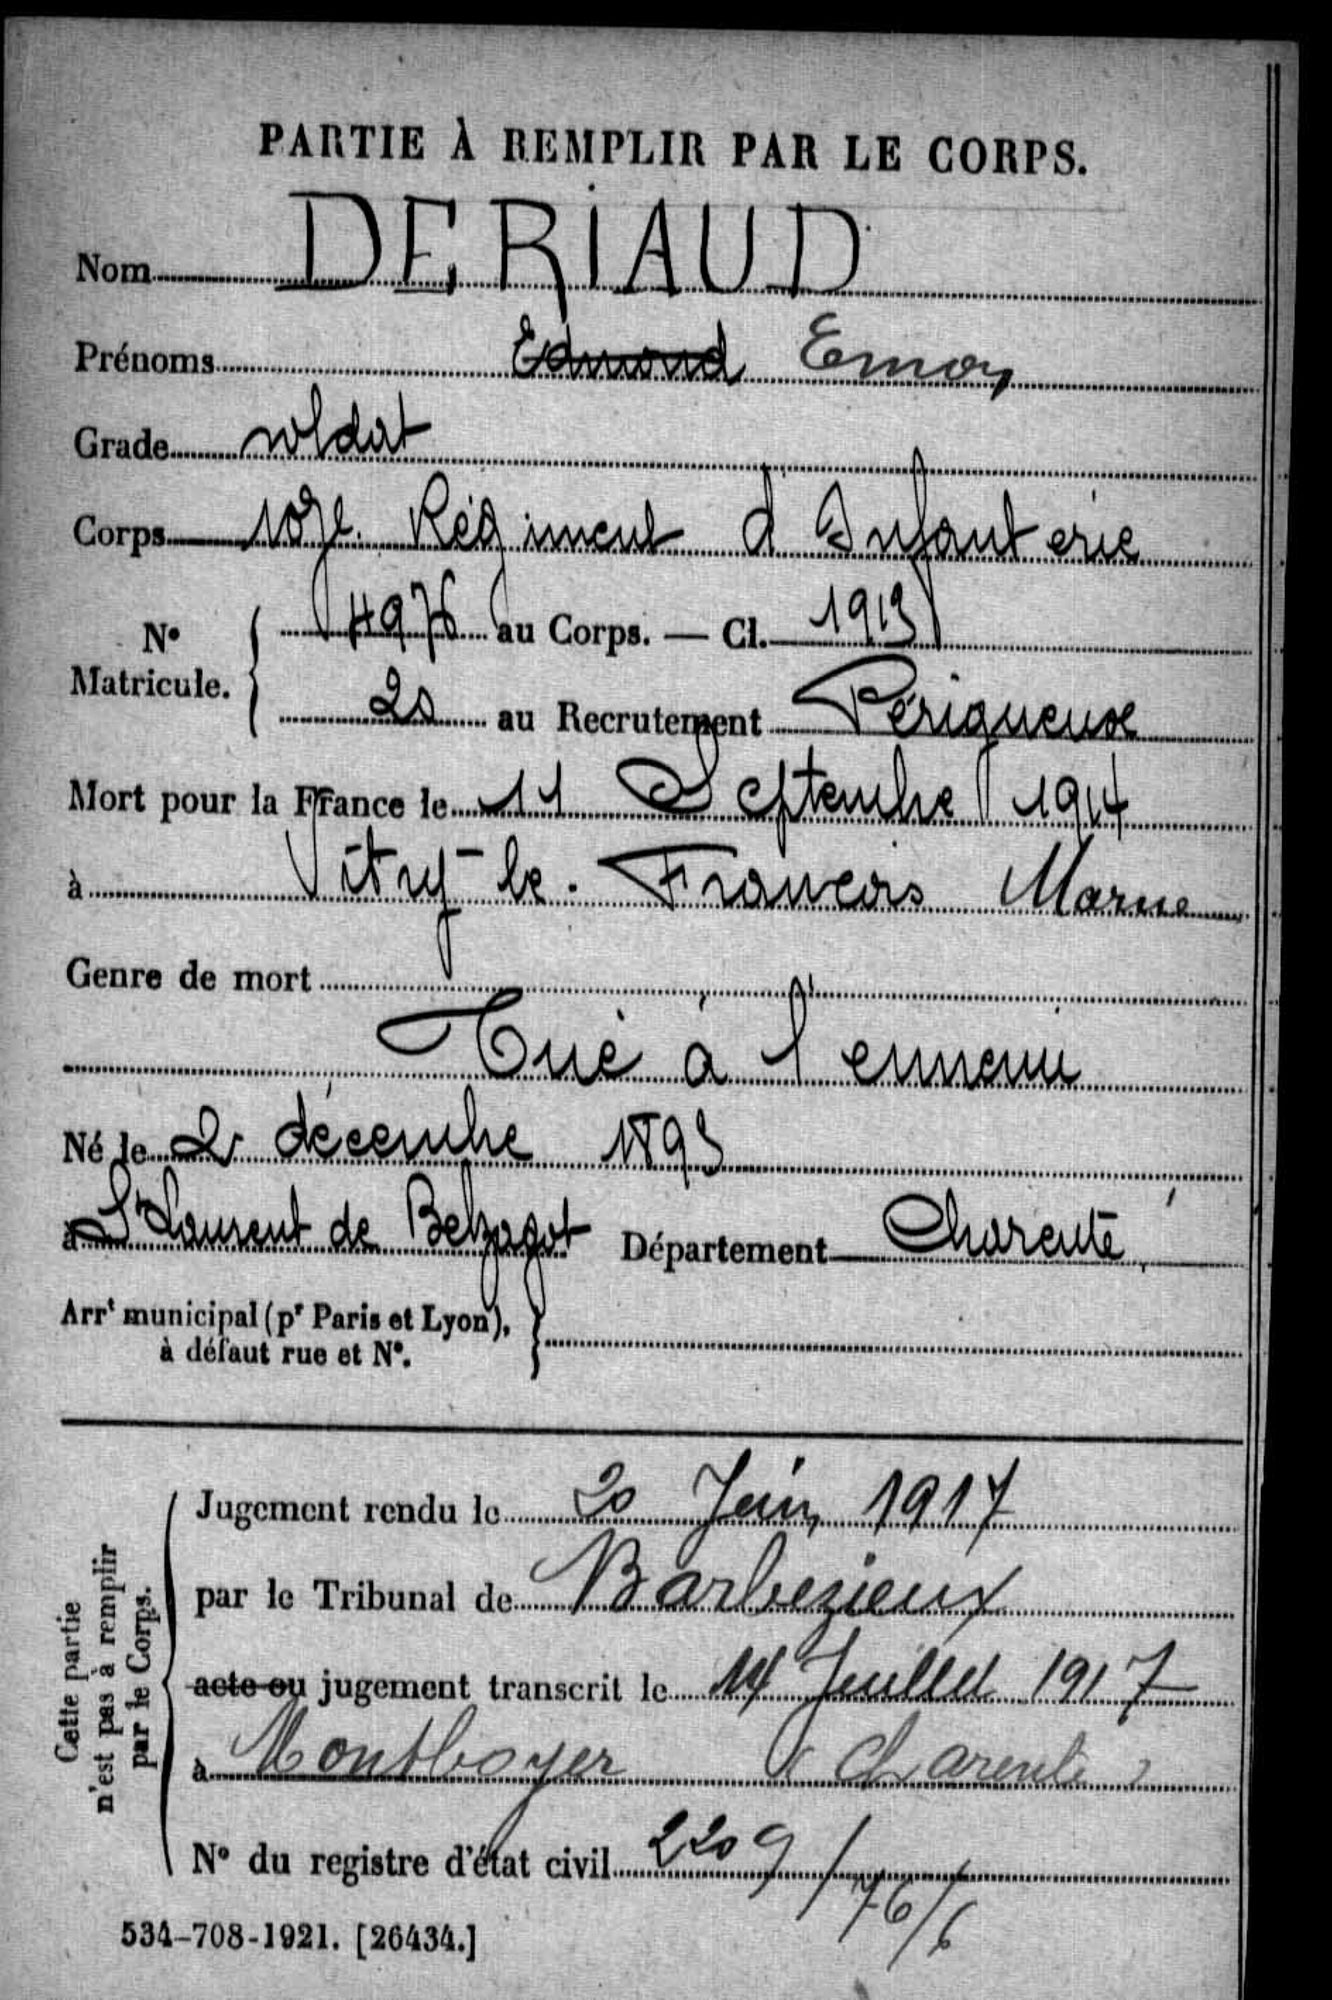 PARTIE À REMPLIR PAR LE CORPS.
Nom DERIAUD
Prénoms Edmond Emon
Grade soldat
Corps 107e Régiment d'Infanterie
N° Matricule. 4976 au Corps. — Cl. 1913
20 au Recrutement Périgueux
Mort pour la France le 11 Septembre 1914
à Vitry-le-François Marne
Genre de mort
Tué à l'ennemi
Né le 2 décembre 1893
à St Laurent de Belzagot Département Charente
Arrt municipal (pr Paris et Lyon),
à défaut rue et N°.
Cette partie
n'est pas à remplir
par le Corps.
Jugement rendu le 20 Juin 1917
par le Tribunal de Barbezieux
acte ou jugement transcrit le 14 Juillet 1917
à Montboyer (Charente)
N° du registre d'état civil 2209/76/6
534-708-1921. [26434.]